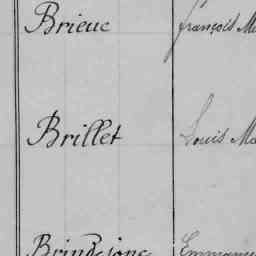 Brieuc François Ma
Brillet Louis Ma
Brindejonc Emmanue